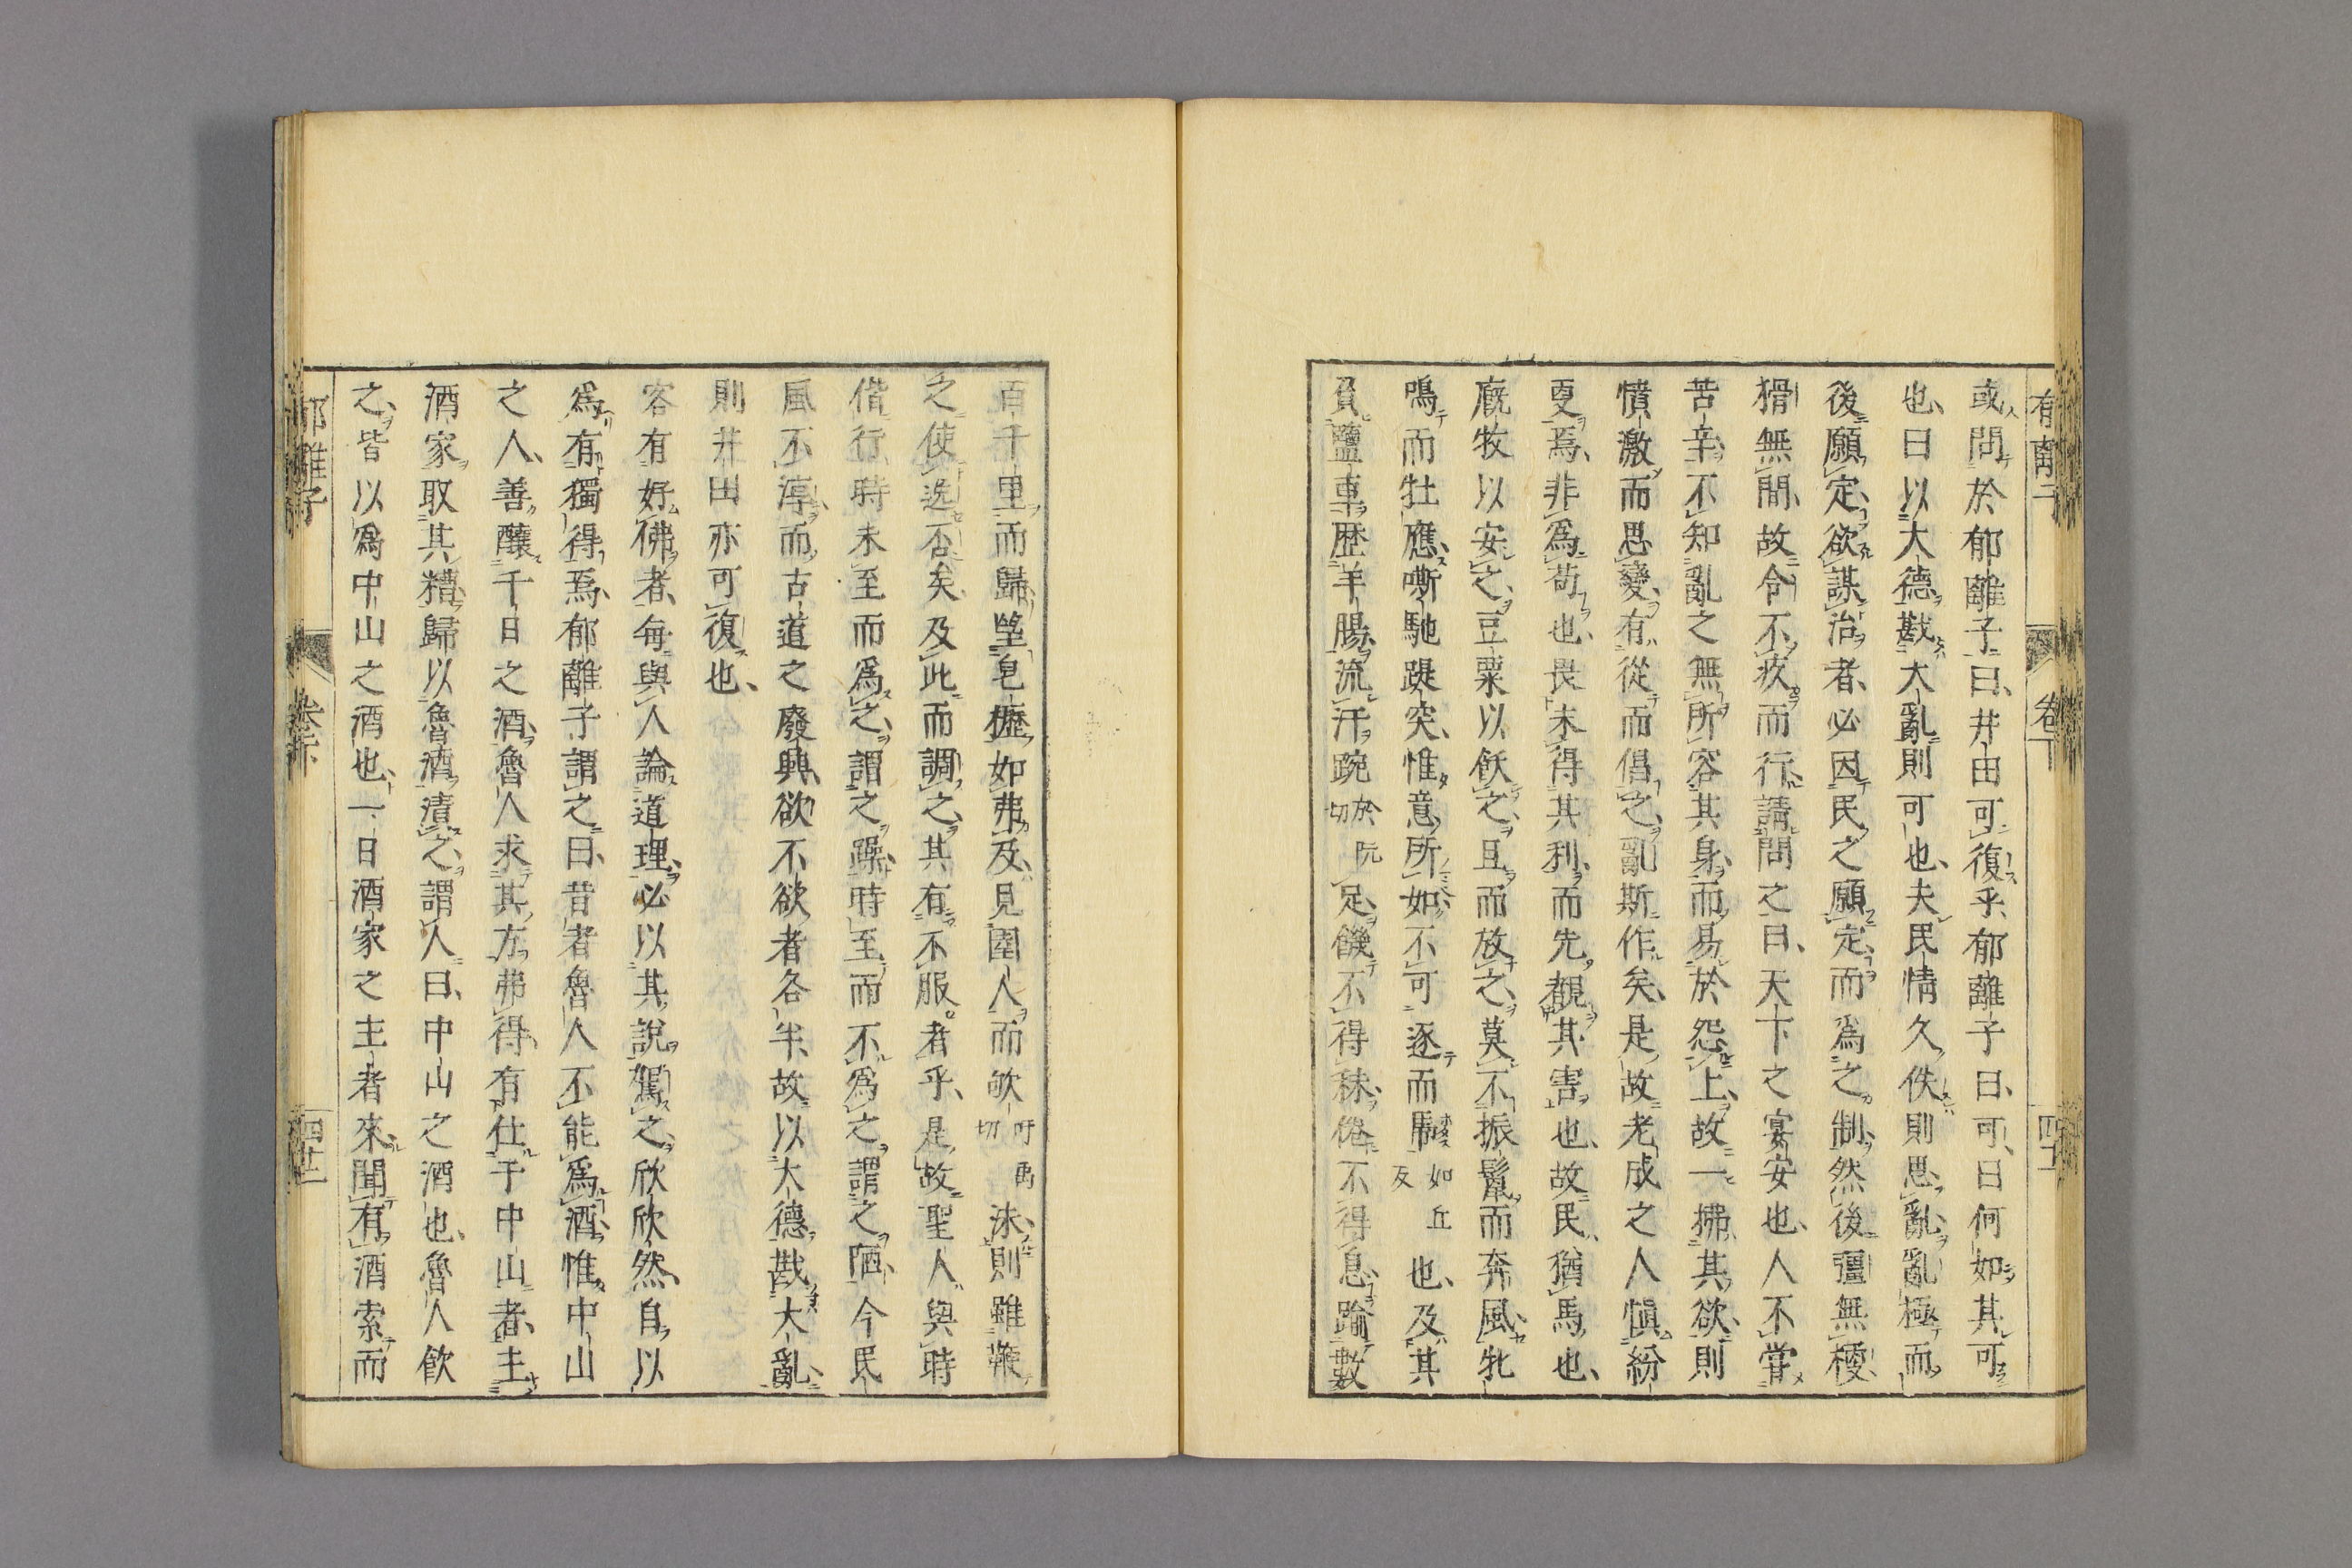 或問於郁離子曰井田可復乎郁離子曰可曰何如其可
也曰以大德戡大亂則可也夫民情久佚則思亂亂極而
後願定欲謀治者必因民之願定而爲之制然後彊無梗
猾無間故令不疚而行請問之曰天下之宴安也人不嘗
苦辛不知亂之無所容其身而易於怨上故一拂其欲則
憤激而思變有從而倡之亂斯作矣是故老成之人愼紛
更焉非爲苟也畏未得其利而先覩其害也故民猶馬也
廐牧以安之豆粟以飫之且而放之莫不振鬣而奔風牝
鳴而牡應嘶馳踶突惟意所如不可逐而馽如丘反也及其
負鹽車歷羊腸流汗踠於阮切足饑不得秣倦不得息踰數
百千里而歸望皂櫪如弗及見圉人而欨吁禹切沫則雖鞭
之使逸否矣及此而調之其有不服者乎是故聖人與時
偕行時未至而爲之謂之躁時至而不爲之謂之陋今民
風不淳而古道之廢興欲不欲者各半故以大德戡大亂
則井田亦可復也
客有好佛者每與人論道理必以其說駕之欣欣然自以
爲有獨得焉郁離子謂之曰昔者魯人不能爲酒惟中山
之人善釀千日之酒魯人求其方弗得有仕于中山者主
酒家取其糟歸以魯酒漬之謂人曰中山之酒也魯人飮
之皆以爲中山之酒也一日酒家之主者來聞有酒索而
郁離子
卷下
四十二